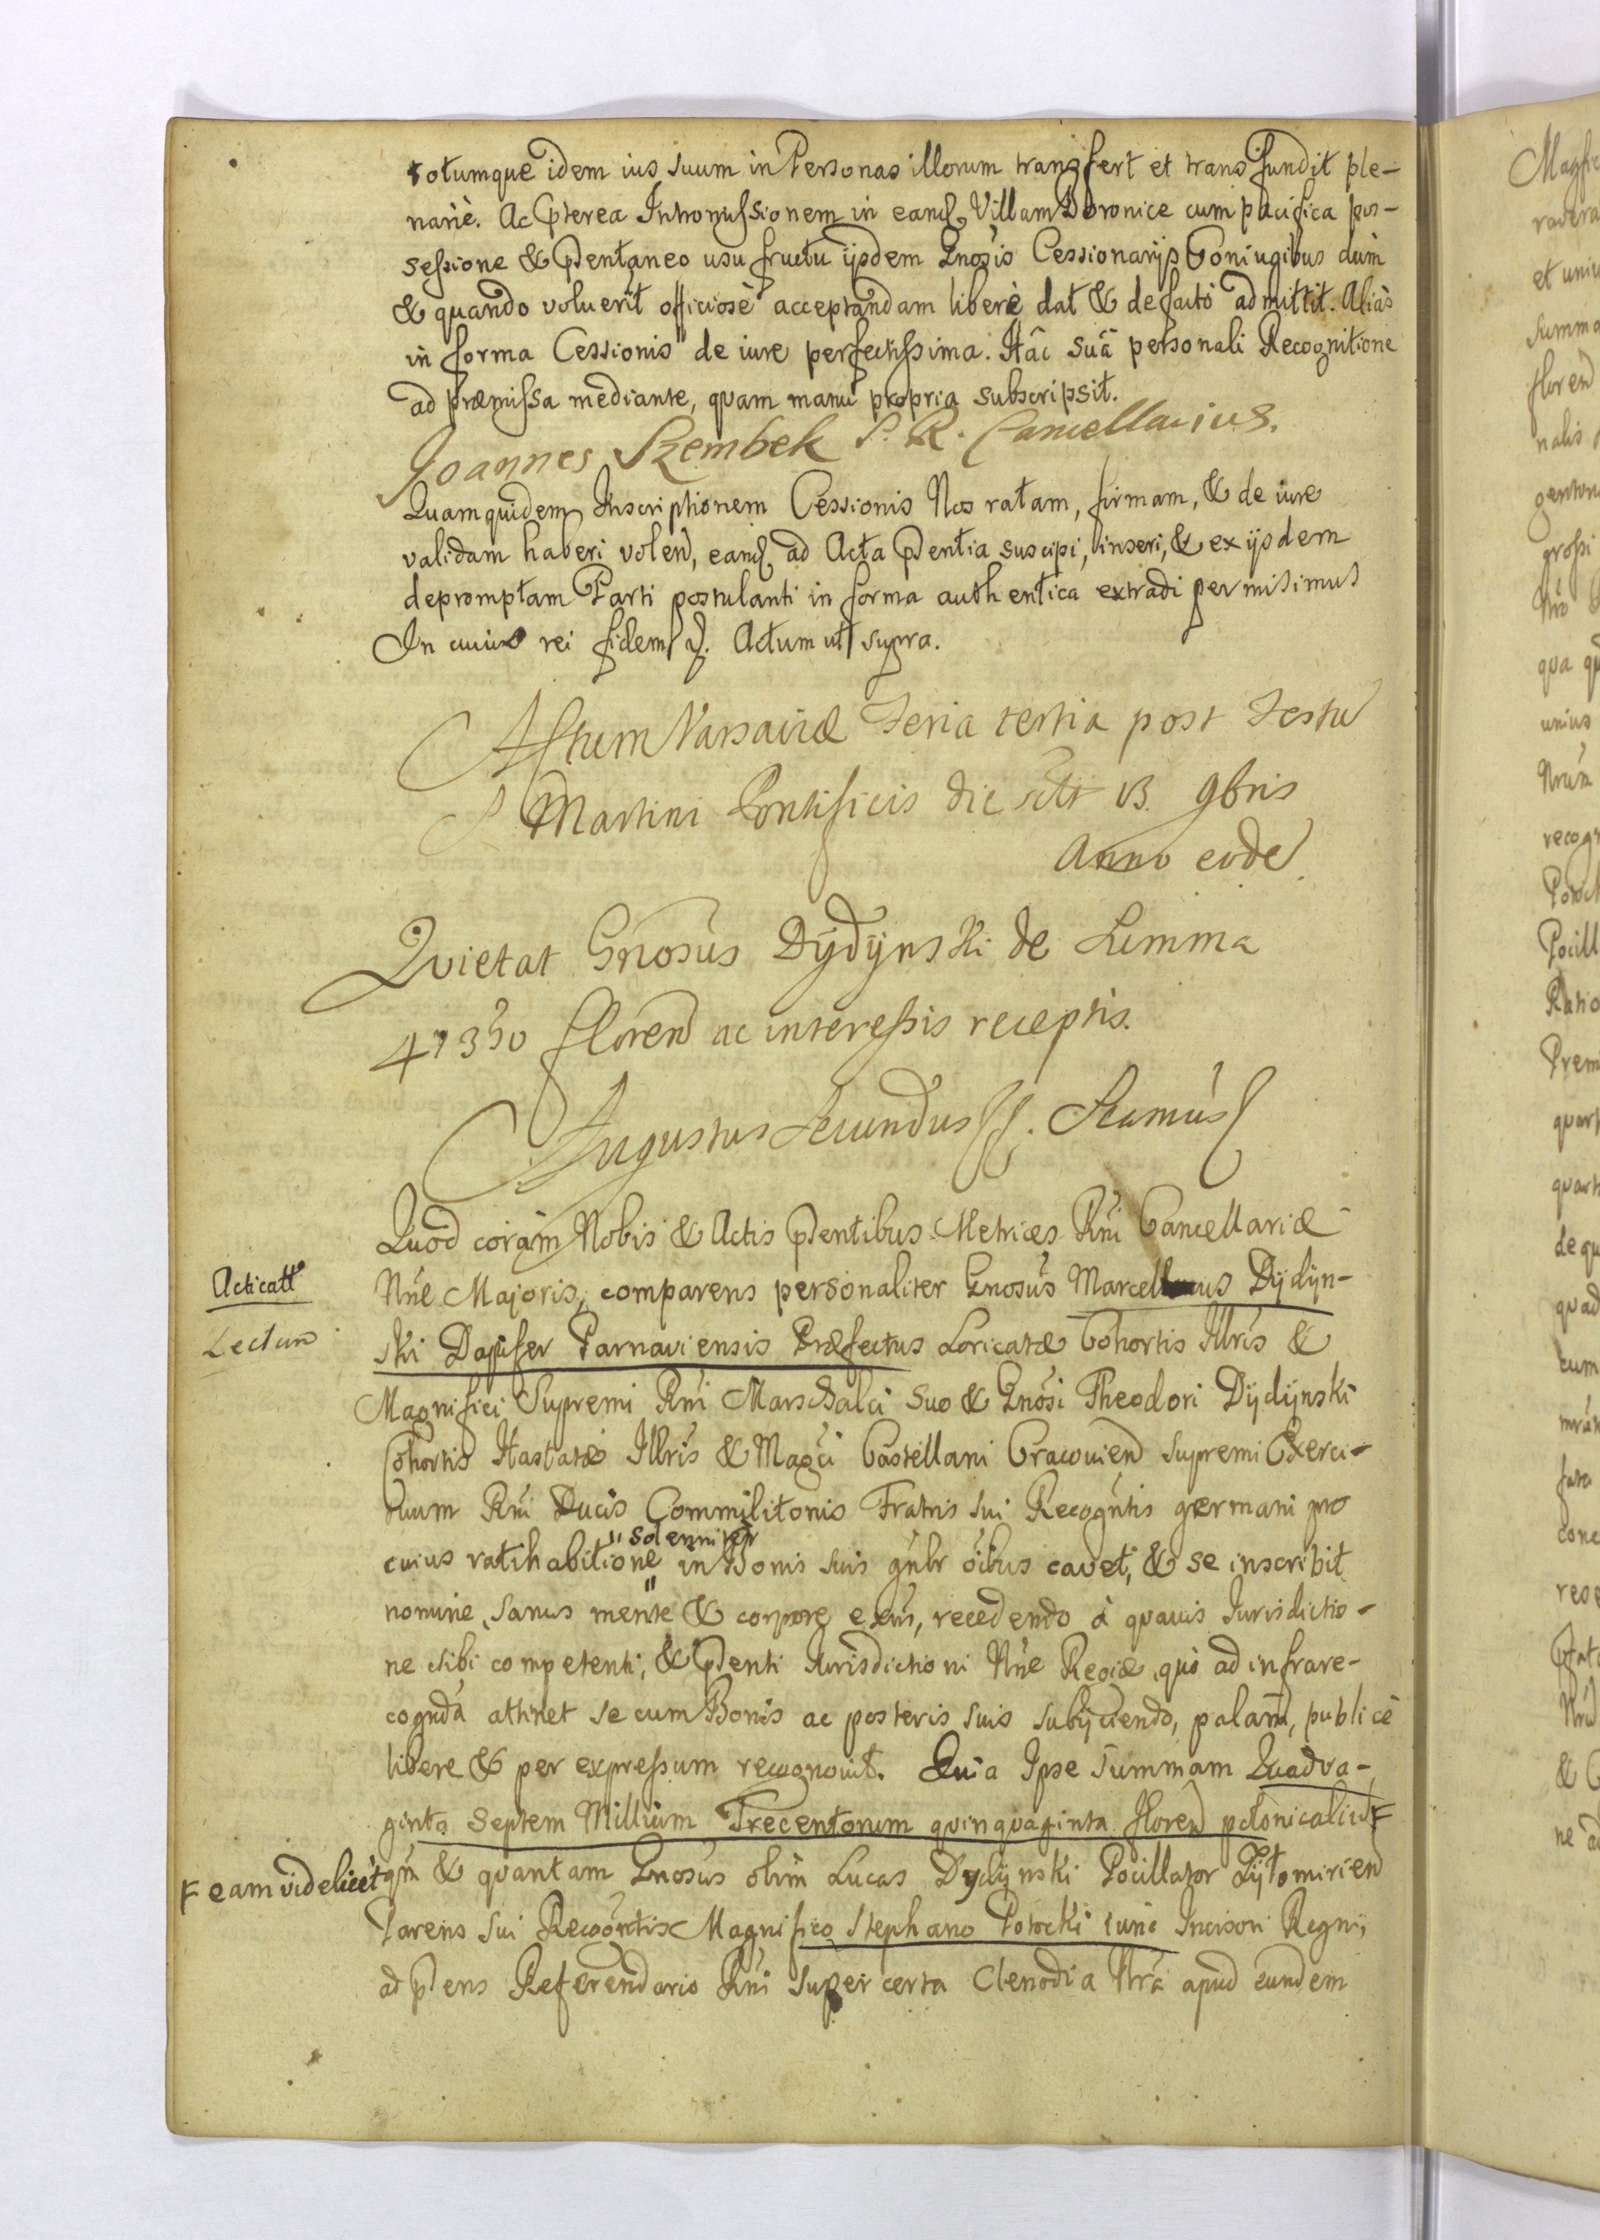 totumque idem ius suum in Personas illorum transfert et transfundit ple-
narie. Ac pterea Intromissionem in eand. Villam Boronice cum pacifica pos-
sessione & pntaneo usufructu ijsdem Gnosis Cessionarijs Coniugibus dum
& quando voluerit officiosè acceptandam liberè dat & defactò admittit. Aliàs
in forma Cessionis de iure perfectissima. Hâc suâ personali Recognitione
ad præmissa mediante, quam manu propria subscripsit.
Joannes Szembek S. R. Cancellarius.
Quamquidem Inscriptionem Cessionis Nos ratam, firmam, & de iure
validam haberi volen, eand. ad Acta pntia suscipi, inseri, & ex ijsdem
depromptam Parti postulanti in forma authentica extradi permisimus
In cuius rei fidem . Actum ut supra.
Actum Varsaviæ Feria tertia post Festu
S Martini Pontificis die scilt 13. 9bris
Anno eode
Quietat Gnosus Dÿdÿnski de Summa
47350 floren ac interessis receptis.
Augustus Secundus . Scamus
Quod coràm Nobis & Actis pntibus Metrices Rni Cancellariæ
Acticatt
Nñe Majoris, comparens personaliter Gnosus Marcellinus Dÿdÿn-
Lectum
ski Dapifer Parnaviensis Præfectus Loricatæ Cohortis Illris &
Magnifici Supremi Rni Marschalci suo & Gnosi Theodori Dÿdÿnski
Cohortis Hastatæ Illris & Magci Castellani Cracovien Supremi Exerci-
tuum Rni Ducis Commilitonis Fratris sui Recogntis germani pro
solenniter
cuius ratihabitione in Bonis suis gnlr oibus cavet, & se inscribit
nomine, sanus mente & corpore exns, recedendo à quavis Jurisdictio-
ne sibi competenti, & pnti Jurisdictioni Nñe Regiæ, quò ad infrare-
cognda attinet se cum Bonis ac posteris suis subijciendo, palam, publicè
libere & per expressum recognovit. Quia Ipse Summam Quadra-
ginta Septem Millium Trecentorum quinquaginta floren polonicaliu F
F eam videlicet qm & quantam Gnosus olim Lucas Dydynski Pocillator Zÿtomirien
Parens sui Recogntis Magnifico Stephano Potocki tunc Incisori Regni,
ad pns Referendario Rni super certa Clenodia Nra apud eundem